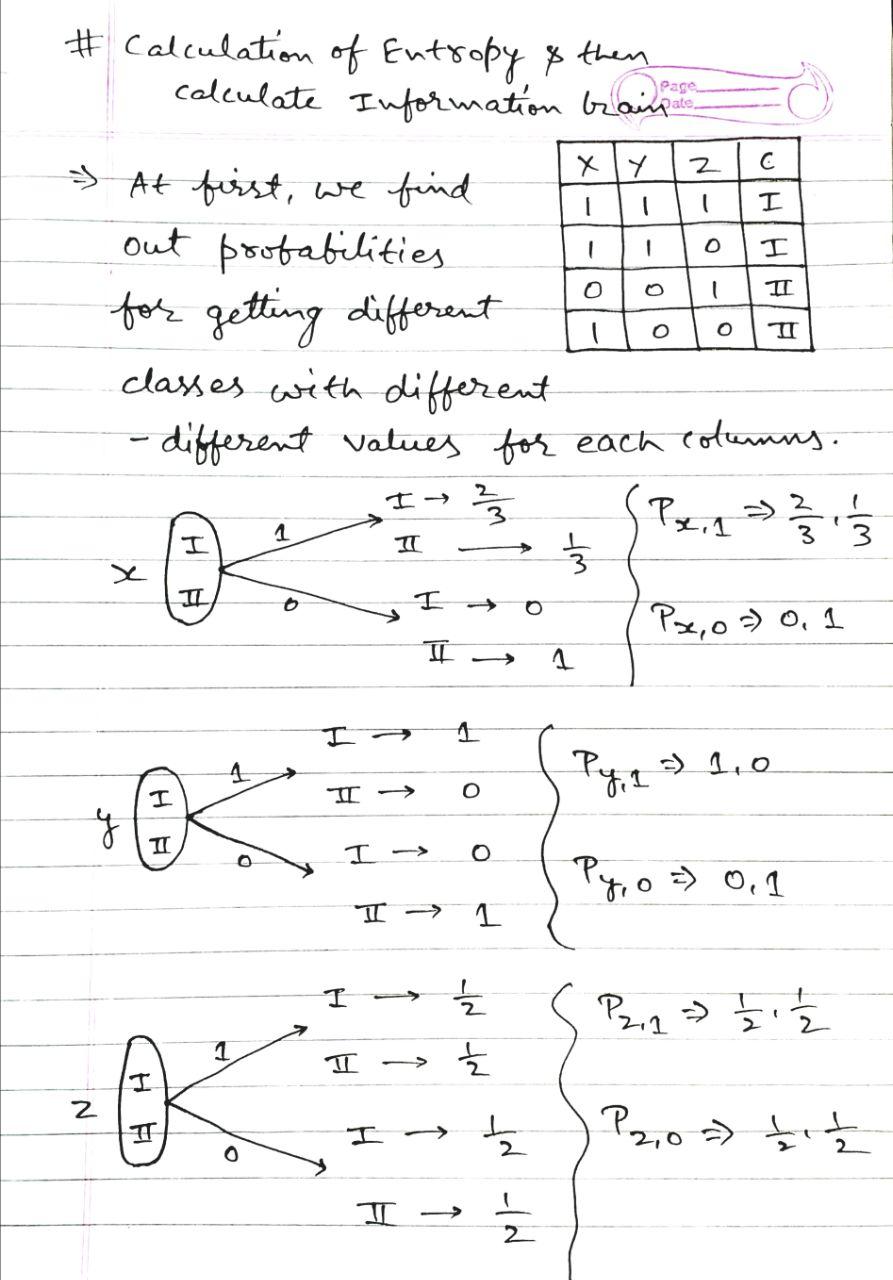 # Calculation of Entropy & then
calculate Information Gain
Page
Date
X Y Z C
1 1 1 I
1 1 0 I
0 0 1 II
1 0 0 II
⇒ At first, we find
out probabilities
for getting different
classes with different
- different values for each columns.
x I II
1 I → 2/3
II → 1/3
0 I → 0
II → 1
Px,1 ⇒ 2/3, 1/3
Px,0 ⇒ 0, 1
y I II
1 I → 1
II → 0
0 I → 0
II → 1
Py,1 ⇒ 1, 0
Py,0 ⇒ 0, 1
z I II
1 I → 1/2
II → 1/2
0 I → 1/2
II → 1/2
Pz,1 ⇒ 1/2, 1/2
Pz,0 ⇒ 1/2, 1/2